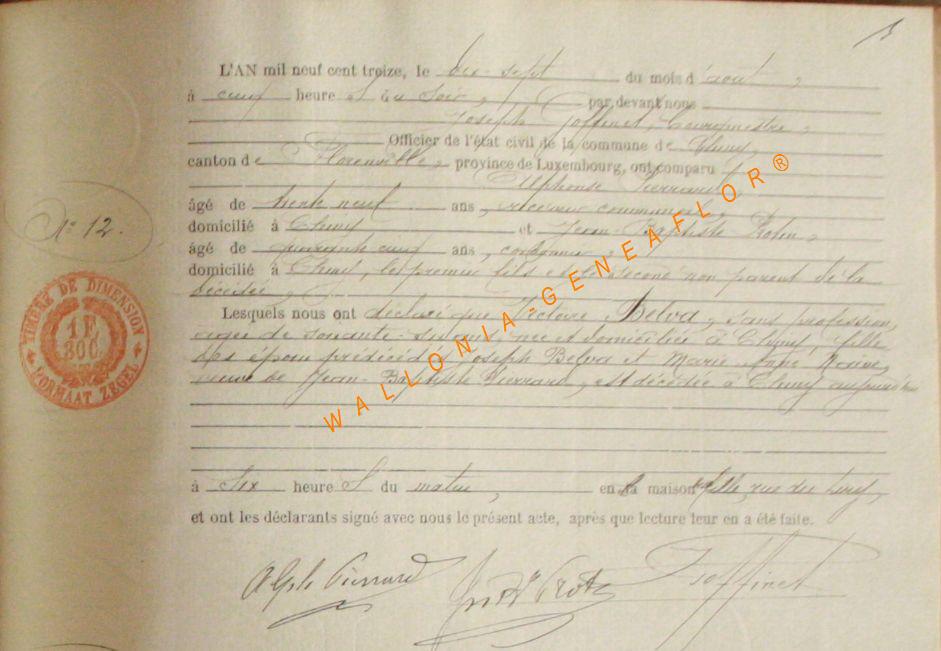 L'AN mil neuf cent treize, le dix-sept du mois d'août,
à cinq heures du soir, par devant nous
Joseph Goffinet, Bourgmestre,
Officier de l'état civil de la commune de Chiny,
canton de Florenville, province de Luxembourg, ont comparu
Alphonse Pierrard,
âgé de trente neuf ans, receveur communal,
domicilié à Chiny et Jean-Baptiste
âgé de quarante cinq ans,
domicilié à Chiny, le premier fils et le second non parent de la
décédée,
Lesquels nous ont déclaré que Victoire Belva, sans profession,
âgée de soixante- née et domiciliée à Chiny, fille
des époux prédécédés Joseph Belva et Marie Anne
veuve de Jean-Baptiste Pierrard, est décédée à Chiny aujourd'hui
à six heures du matin, en la maison rue du
et ont les déclarants signé avec nous le présent acte, après que lecture leur en a été faite.
Alph Pierrard
J Goffinet
N° 12.
TIMBRE DE DIMENSION
1 F
30 C.
FORMAAT ZEGEL
WALLONIA-GENEAFLOR®